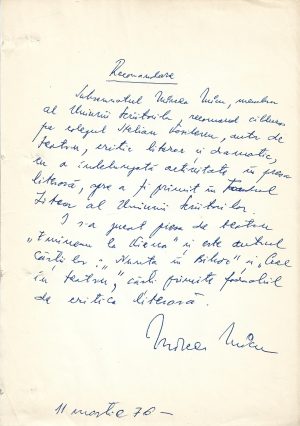 Recomandare
Subsemnatul Mircea Micu, membru
al Uniunii Scriitorilor, recomand călduros
pe colegul Stelian Vasilescu, autor de
teatru, critic literar și dramatic,
cu o îndelungată activitate în presa
literară, spre a fi primit în
al Uniunii Scriitorilor.
I s-a jucat piesa de teatru
„Eminescu la Viena" și este autorul
cărților: „Nunta în Bihor" și
în teatru", cărți primite favorabil
de critica literară.
Mircea Micu
11 martie 76 –